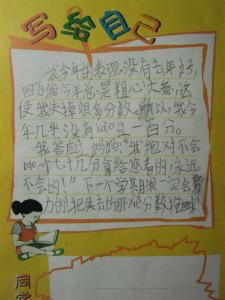 写给自己
我今年的表现没有去年好,
因为我今年总是粗心大意,这
使我丢掉很多分数。所以,我今
年几乎没有kǎo过一百分。
我答应妈妈:“我绝对不会
kǎo个七十几分拿给您看的,永远
不会的!”下一个学期我一定会努
力的把失去的那些分数
同学